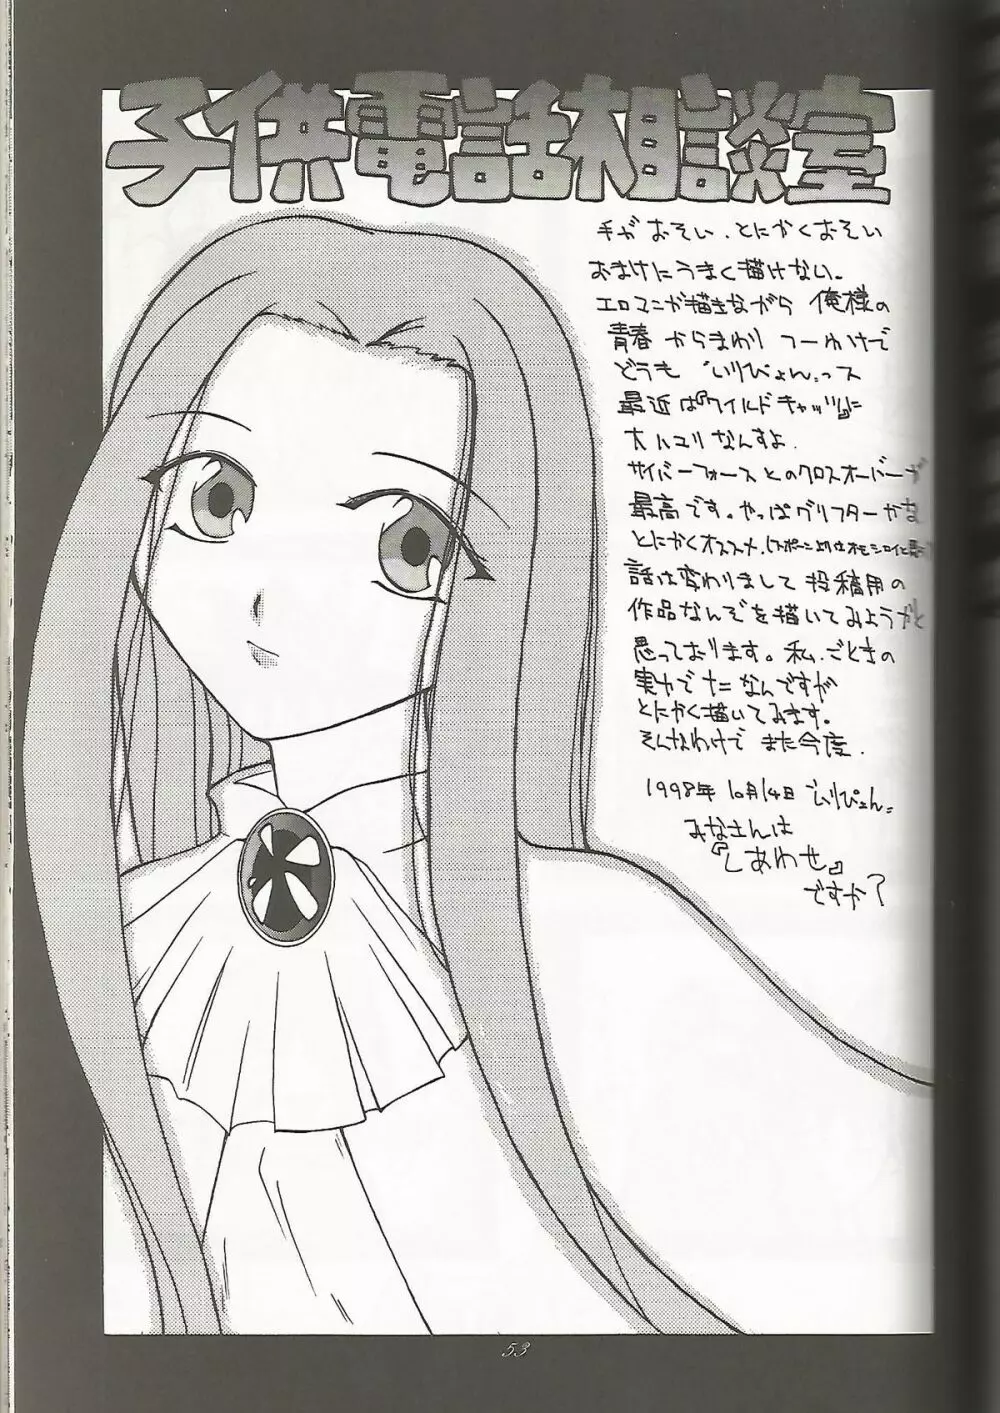 子供電話相談室
手がおそい、とにかくおそい
おまけにうまく描けない。
エロマンガ描きながら 俺様の
青春 からまわり つーわけで
どうも "いりぴょん"っス
最近は『ワイルドキャッツ』に
大ハマリなんすよ.
サイバーフォースとのクロスオーバーが
最高です。やっぱグリフターかな
とにかくオススメ.(スポーンよりはオモシロイと思
話は変わりまして 投稿用の
作品なんぞを描いてみようかと
思っております。私、ごときの
実力でナニなんですが
とにかく描いてみます。
そんなわけで また今度.
1998年 10月14日 いりぴょん.
みなさんは
『しあわせ』
ですか?
53